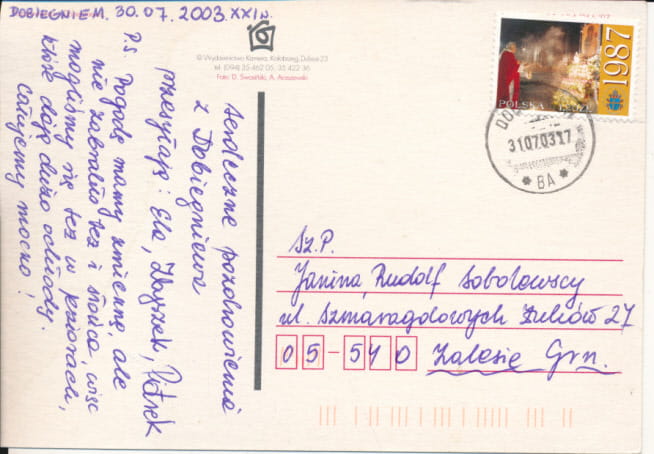 DOBIEGNIEW. 30.07.2003. XXI w.
© Wydawnictwo Kamera, Kołobrzeg, Dubois 23
tel. (094) 35 462 05, 35 422 36
Foto: D. Swasiński, A. Araszewski
Serdeczne pozdrowienia
z Dobiegniewa
przesyłają: Ela, Zbyszek, Patryk
P.S. Pogodę mamy zmienną, ale
nie zabrakło też i słońca, więc
moczyliśmy się też w jeziorach,
które dają dużo ochłody.
Całujemy mocno!
POLSKA
1987
31.07.03.17
* BA *
Sz.P.
Janina, Rudolf Sobolewscy
ul. Szmaragdowych Żuków 27
05-540 Zalesie Grn.